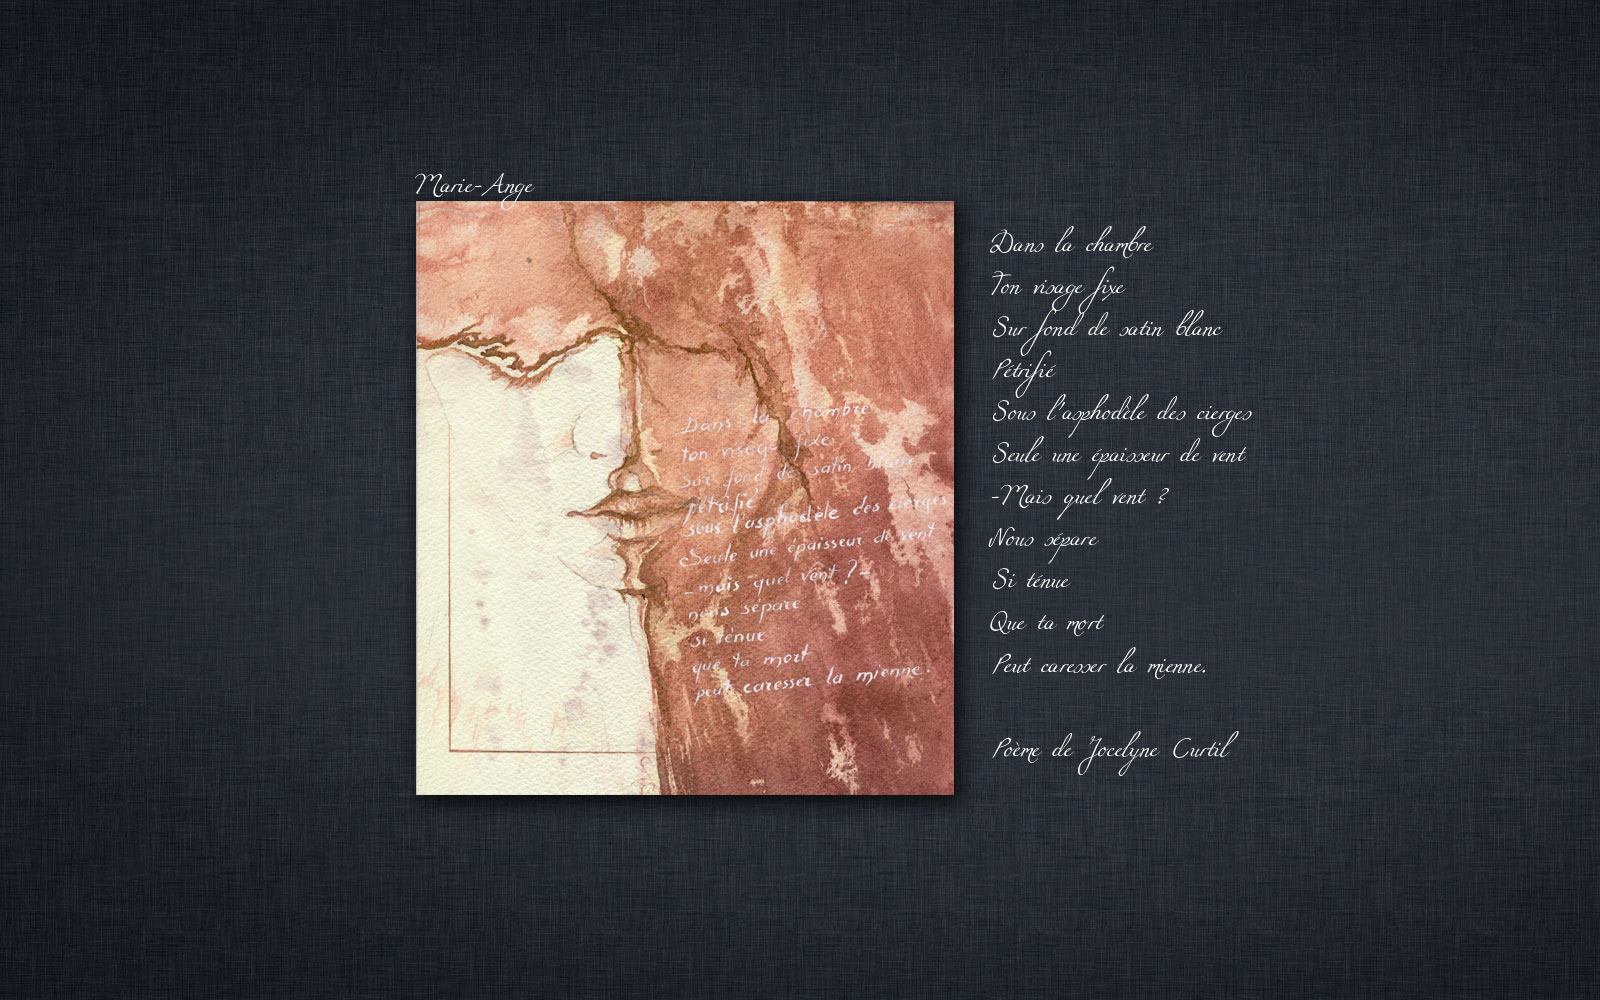 Marie-Ange
Dans la chambre
ton visage fixe
sur fond de satin blanc
pétrifié
sous l'asphodèle des cierges
Seule une épaisseur de vent
-mais quel vent ?-
nous sépare
si ténue
que ta mort
peut caresser la mienne.
Dans la chambre
Ton visage fixe
Sur fond de satin blanc
Pétrifié
Sous l'asphodèle des cierges
Seule une épaisseur de vent
-Mais quel vent ?
Nous sépare
Si ténue
Que ta mort
Peut caresser la mienne.
Poème de Jocelyne Curtil